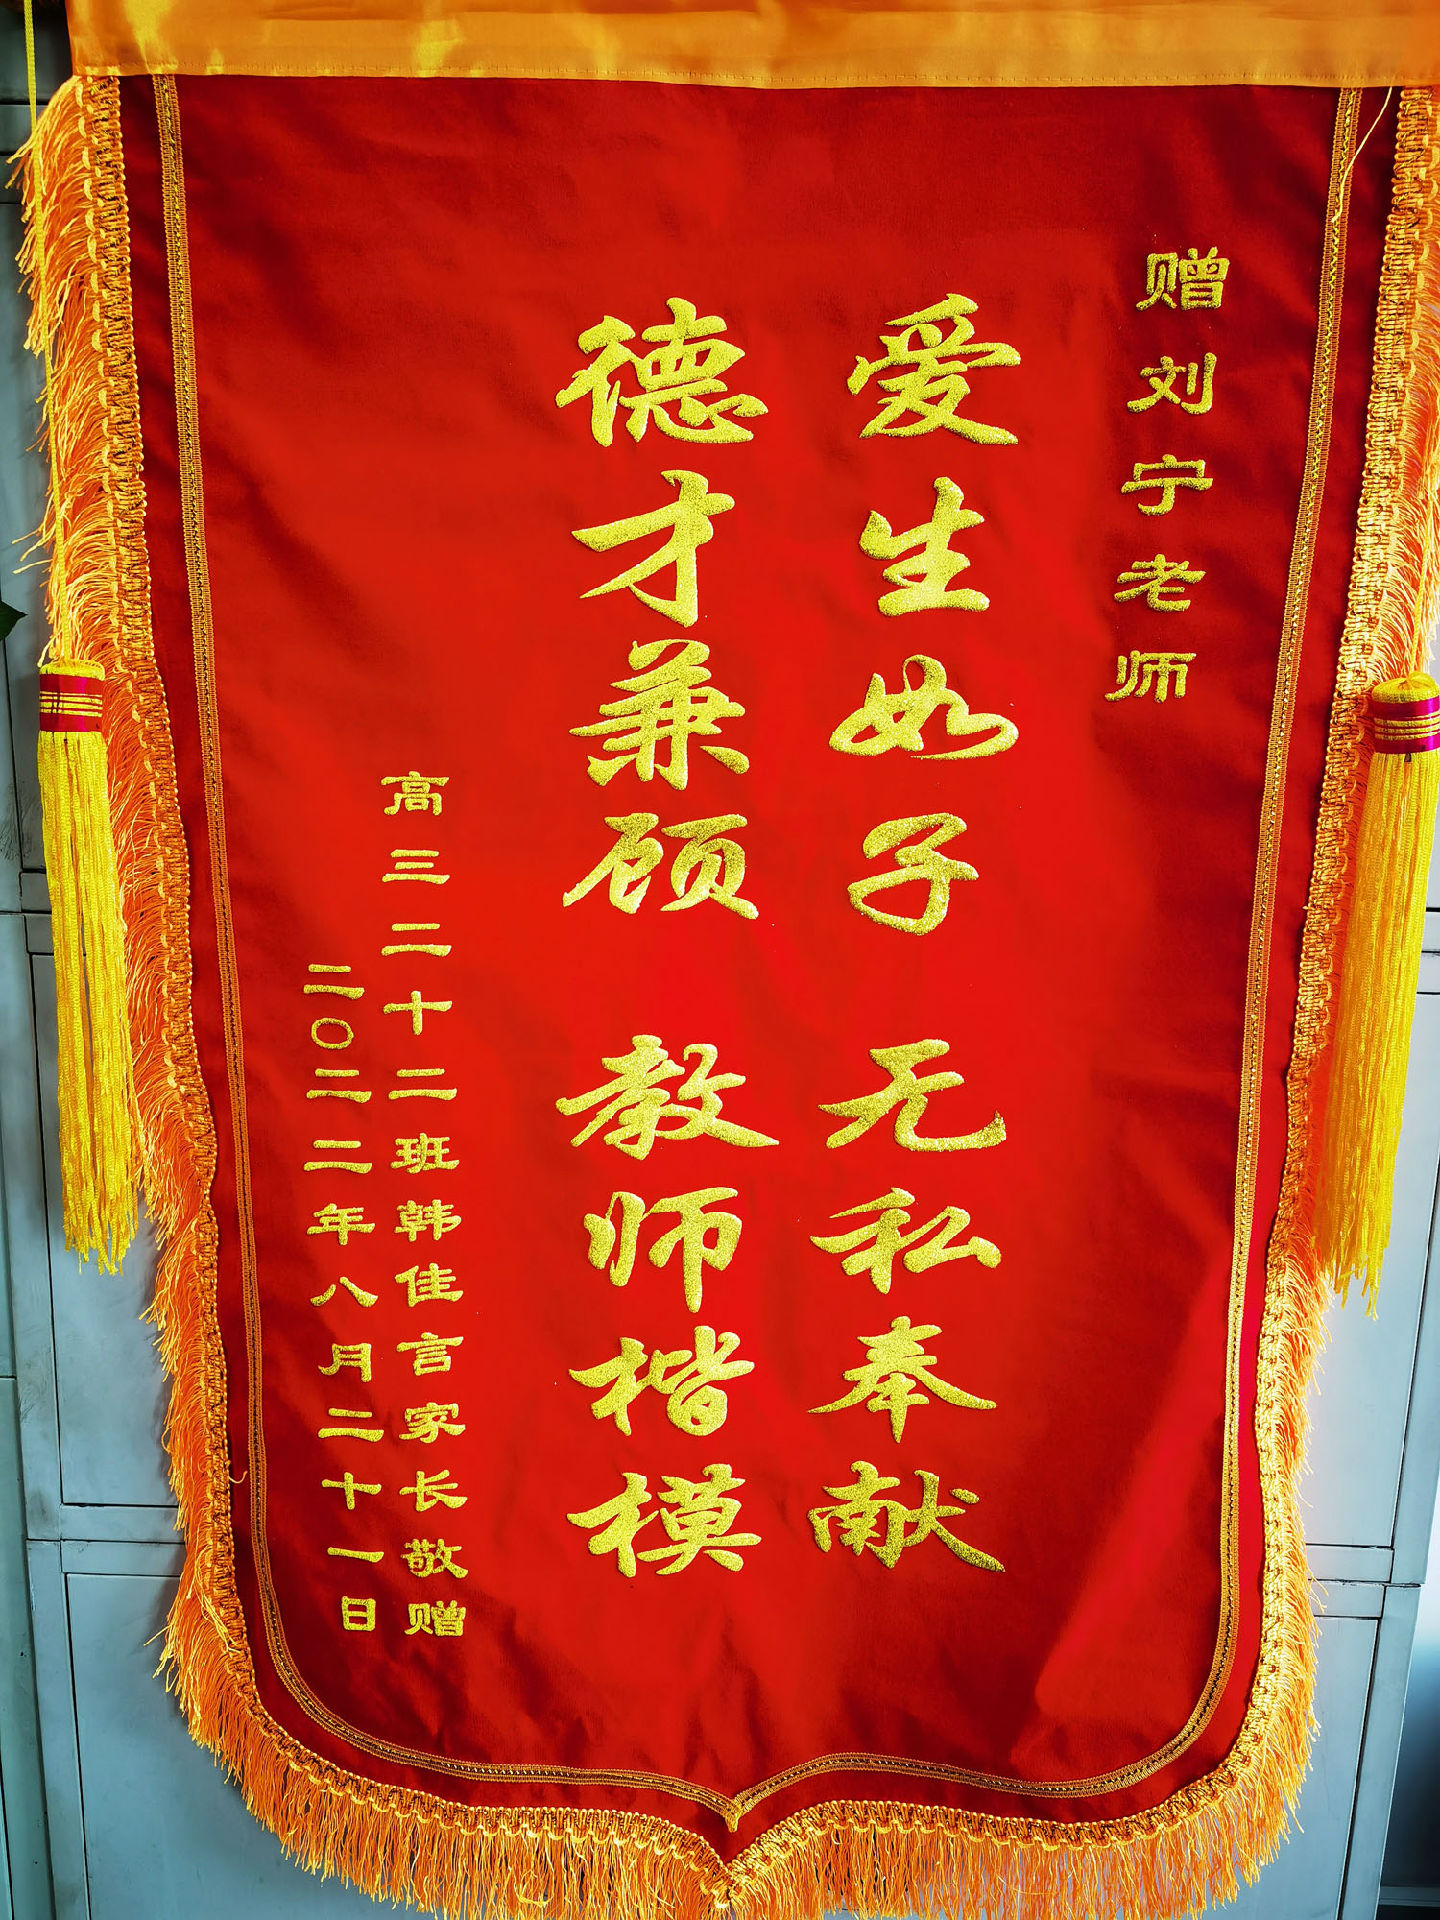 赠刘宁老师
爱生如子 无私奉献
德才兼顾 教师楷模
高三二十二班韩佳言家长敬赠
二〇二二年八月二十一日